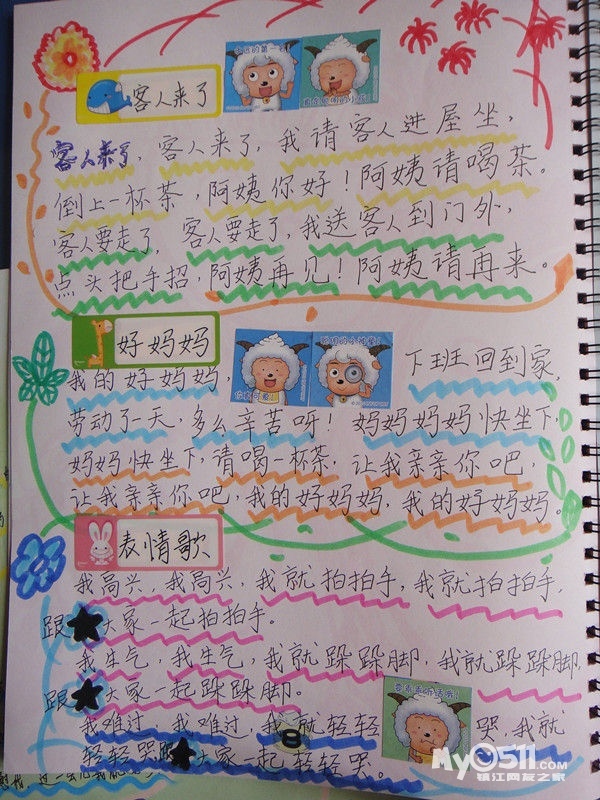 客人来了
客人来了，客人来了，我请客人进屋坐，
倒上一杯茶，阿姨你好！阿姨请喝茶。
客人要走了，客人要走了，我送客人到门外，
点头把手招，阿姨再见！阿姨请再来。
好妈妈
我的好妈妈，下班回到家，
劳动了一天，多么辛苦呀！妈妈妈妈快坐下，
妈妈快坐下，请喝一杯茶，让我亲亲你吧，
让我亲亲你吧，我的好妈妈，我的好妈妈。
表情歌
我高兴，我高兴，我就拍拍手，我就拍拍手，
跟大家一起拍拍手。
我生气，我生气，我就跺跺脚，我就跺跺脚，
跟大家一起跺跺脚。
我难过，我难过，我就轻轻哭，我就
轻轻哭跟大家一起轻轻哭。
8
My0511.com
镇江网友之家